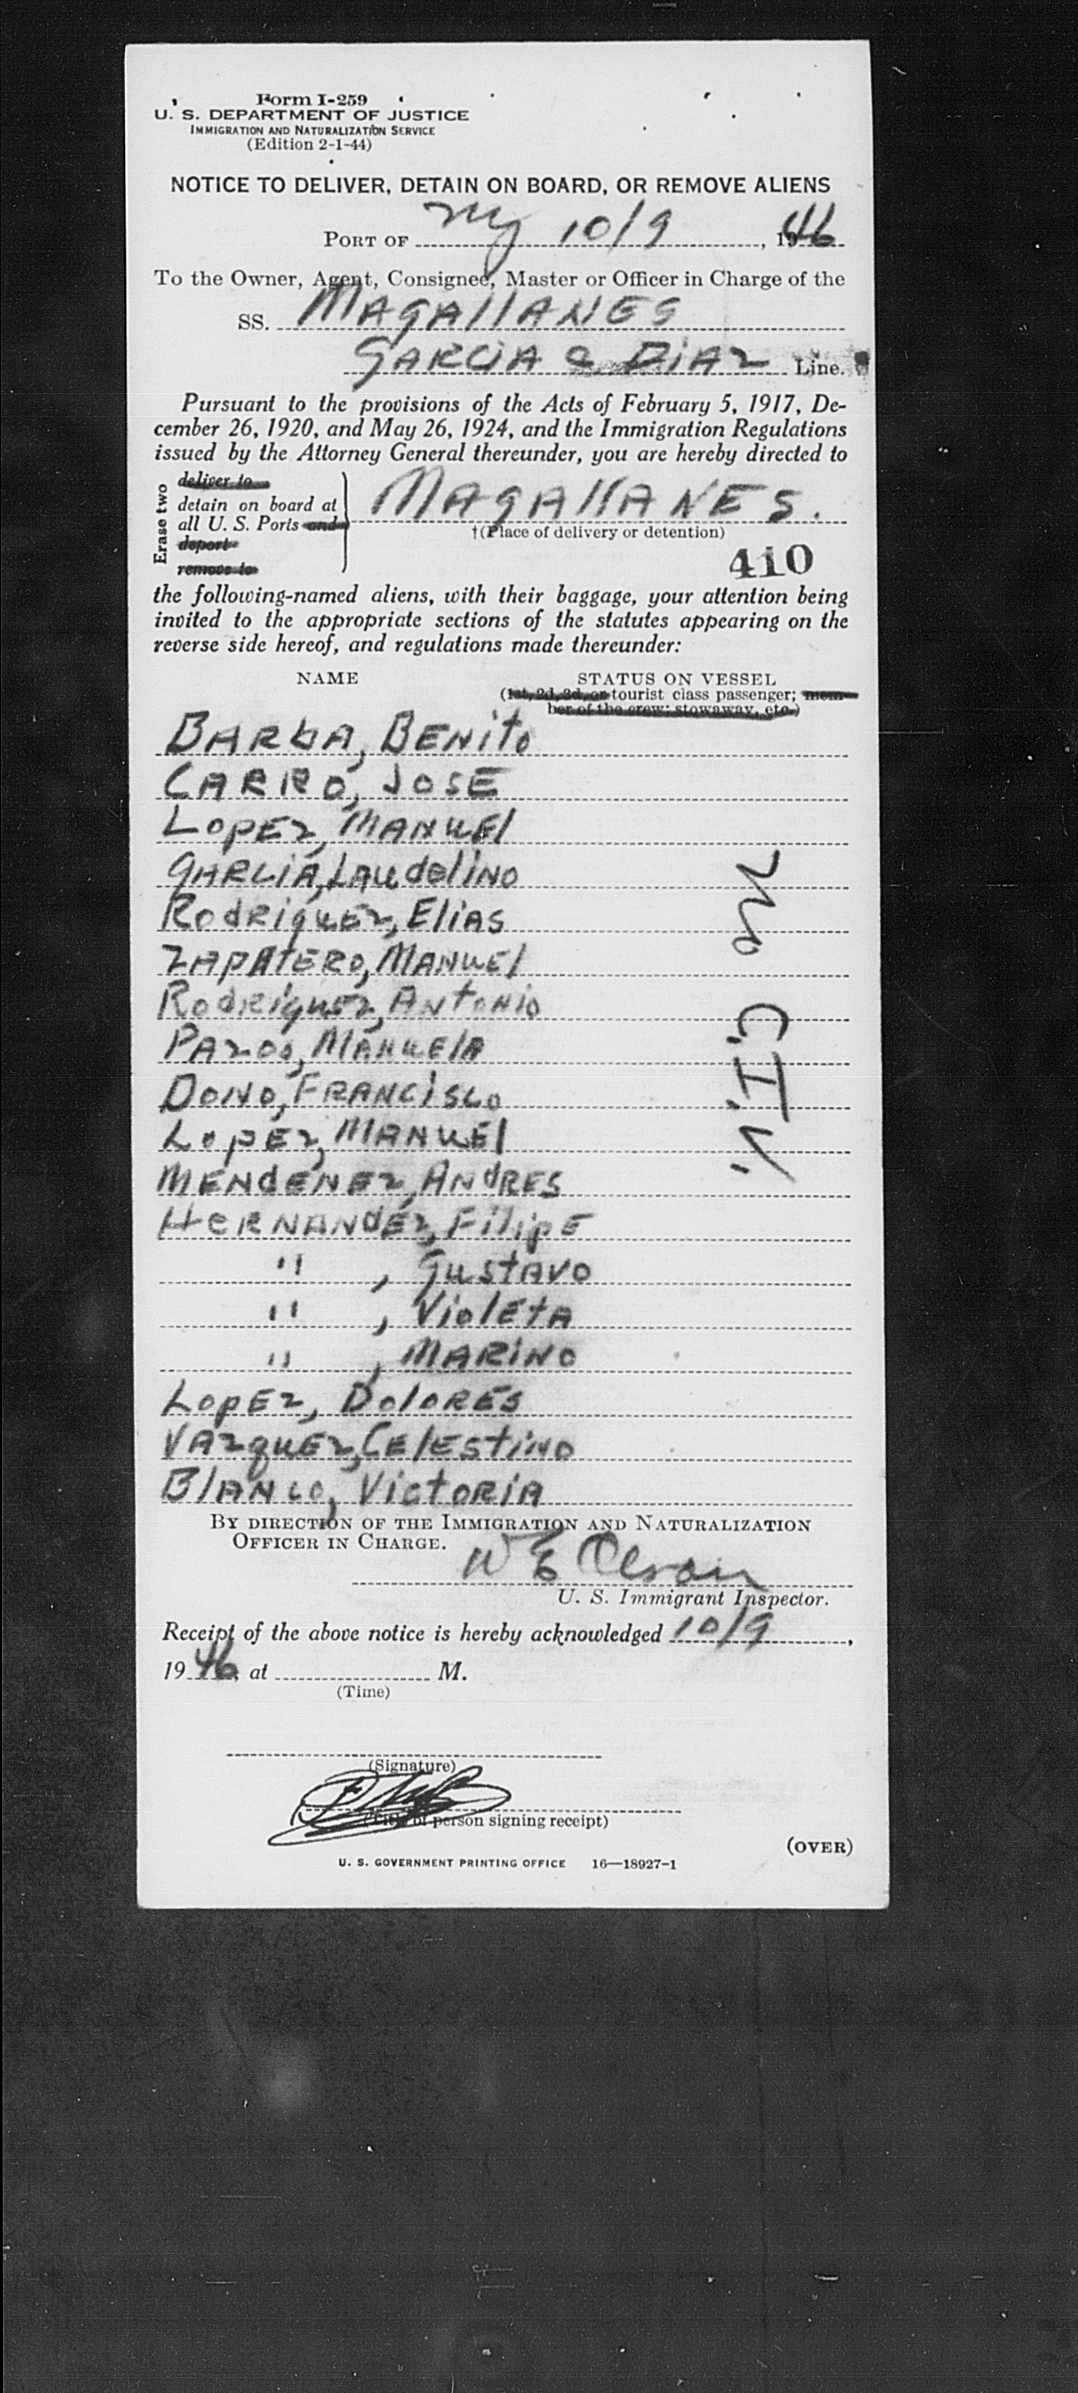 Form I-259
U. S. DEPARTMENT OF JUSTICE
IMMIGRATION AND NATURALIZATION SERVICE
(Edition 2-1-44)
NOTICE TO DELIVER, DETAIN ON BOARD, OR REMOVE ALIENS
PORT OF NY 10/9, 1946
To the Owner, Agent, Consignee, Master or Officer in Charge of the
SS. MAGALLANES
GARCIA & DIAZ Line.
Pursuant to the provisions of the Acts of February 5, 1917, De-
cember 26, 1920, and May 26, 1924, and the Immigration Regulations
issued by the Attorney General thereunder, you are hereby directed to
Erase two
deliver to
detain on board at
all U. S. Ports and
deport
remove to
MAGALLANES.
†(Place of delivery or detention)
410
the following-named aliens, with their baggage, your attention being
invited to the appropriate sections of the statutes appearing on the
reverse side hereof, and regulations made thereunder:
NAME STATUS ON VESSEL
(1st, 2d, 3d, or tourist class passenger; mem-
ber of the crew; stowaway, etc.)
BARBA, BENITO
CARRO, JOSE
LOPEZ, MANUEL
GARCIA, LAUDELINO
RODRIGUEZ, ELIAS
ZAPATERO, MANUEL
RODRIGUEZ, ANTONIO
PAZOS, MANUELA
DONO, FRANCISCO
LOPEZ, MANUEL
MENDENEZ, ANDRES
HERNANDEZ, FILIPE
" , GUSTAVO
" , VIOLETA
" , MARINO
LOPEZ, DOLORES
VAZQUEZ, CELESTINO
BLANCO, VICTORIA
No C.I.V.
BY DIRECTION OF THE IMMIGRATION AND NATURALIZATION
OFFICER IN CHARGE.
W E Olson
U. S. Immigrant Inspector.
Receipt of the above notice is hereby acknowledged 10/9,
1946 at M.
(Time)
(Signature)
(Title of person signing receipt)
(OVER)
U. S. GOVERNMENT PRINTING OFFICE 16—18927-1